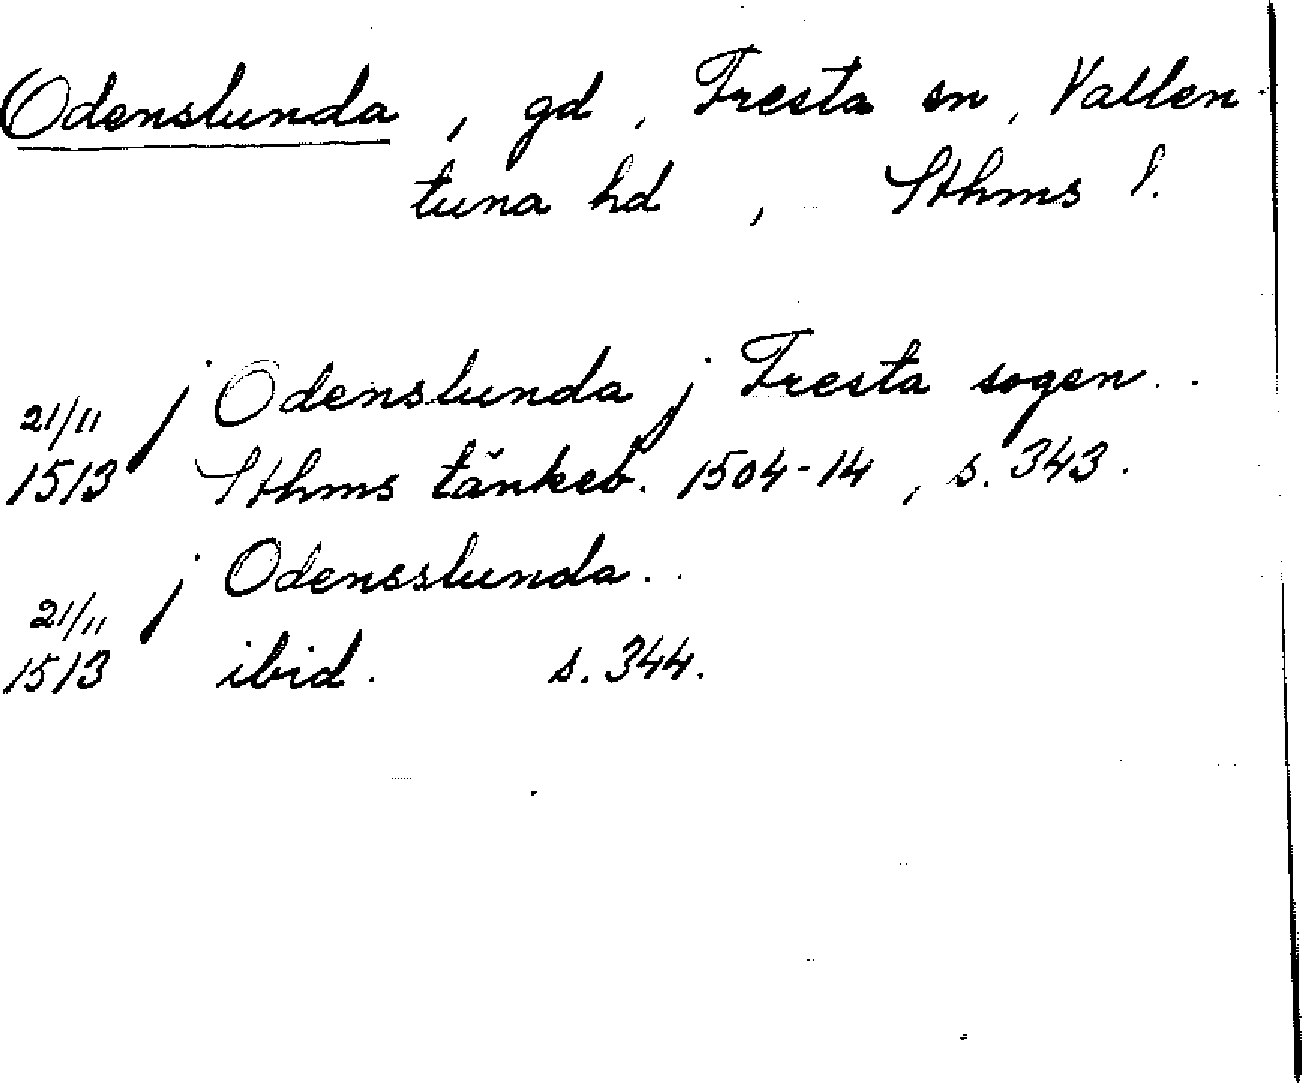 Odenslunda, gd, Fresta sn, Vallen-
tuna hd, Sthms l.
21/11 j Odenslunda j Fresta sogen..
1513 Sthms tänkeb. 1504-14, s. 343.
21/11 j Odensslunda..
1513 ibid. s. 344.